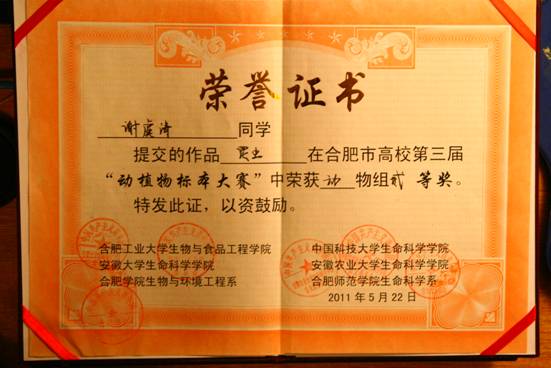 荣誉证书
谢虞涛 同学
提交的作品 在合肥市高校第三届
“动植物标本大赛”中荣获 动 物组 贰 等奖。
特发此证，以资鼓励。
合肥工业大学生物与食品工程学院 中国科技大学生命科学学院
安徽大学生命科学学院 安徽农业大学生命科学学院
合肥学院生物与环境工程系 合肥师范学院生命科学系
2011年5月22日